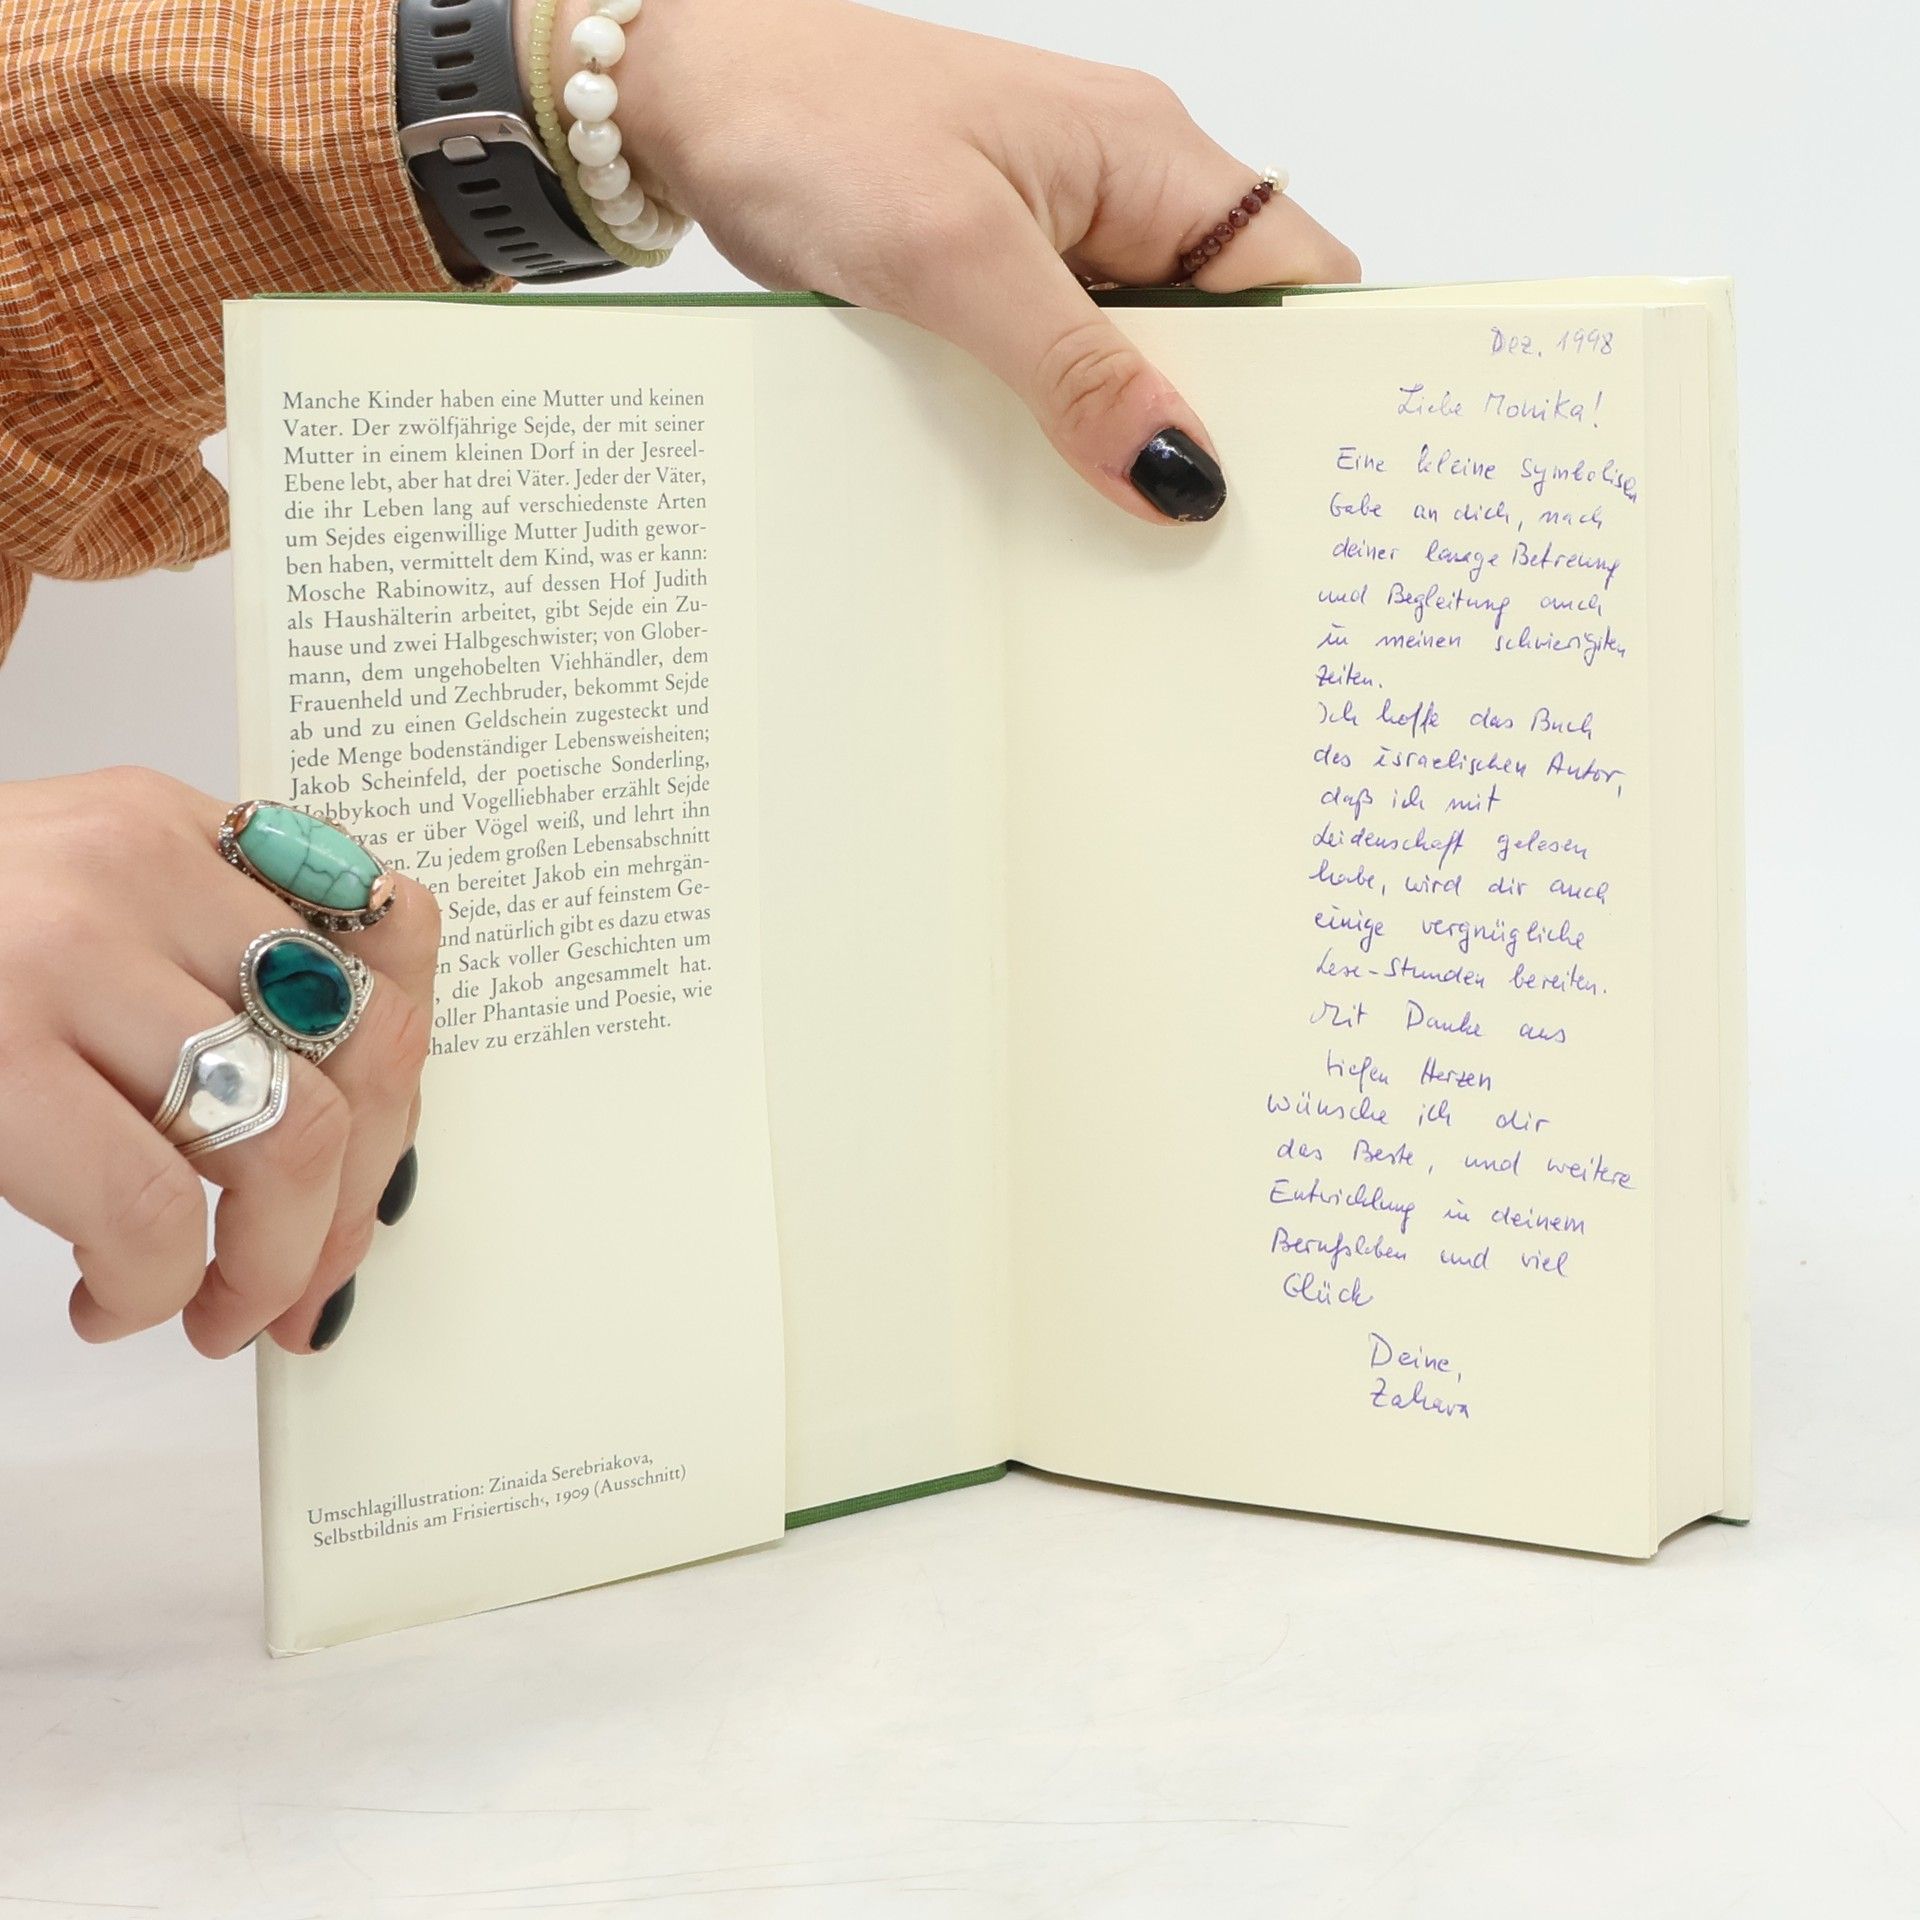 Manche Kinder haben eine Mutter und keinen
Vater. Der zwölfjährige Sejde, der mit seiner
Mutter in einem kleinen Dorf in der Jesreel-
Ebene lebt, aber hat drei Väter. Jeder der Väter,
die ihr Leben lang auf verschiedenste Arten
um Sejdes eigenwillige Mutter Judith gewor-
ben haben, vermittelt dem Kind, was er kann:
Mosche Rabinowitz, auf dessen Hof Judith
als Haushälterin arbeitet, gibt Sejde ein Zu-
hause und zwei Halbgeschwister; von Glober-
mann, dem ungehobelten Viehhändler, dem
Frauenheld und Zechbruder, bekommt Sejde
ab und zu einen Geldschein zugesteckt und
jede Menge bodenständiger Lebensweisheiten;
Jakob Scheinfeld, der poetische Sonderling,
Hobbykoch und Vogelliebhaber erzählt Sejde
was er über Vögel weiß, und lehrt ihn
en. Zu jedem großen Lebensabschnitt
hen bereitet Jakob ein mehrgän-
Sejde, das er auf feinstem Ge-
und natürlich gibt es dazu etwas
en Sack voller Geschichten um
, die Jakob angesammelt hat.
oller Phantasie und Poesie, wie
halev zu erzählen versteht.
Umschlagillustration: Zinaida Serebriakova,
Selbstbildnis am Frisiertisch‹, 1909 (Ausschnitt)
Dez. 1998
Liebe Monika!
Eine kleine Symbolisch
Gabe an dich, nach
deiner lange Betreung
und Begleitung auch
in meinen schwierigsten
Zeiten.
Ich hoffe das Buch
des israelischen Autor,
daß ich mit
Leidenschaft gelesen
habe, wird dir auch
einige vergnügliche
Lese-Stunden bereiten.
Mit Danke aus
tiefen Herzen
wünsche ich dir
das Beste, und weitere
Entwicklung in deinem
Berufsleben und viel
Glück
Deine,
Zahava